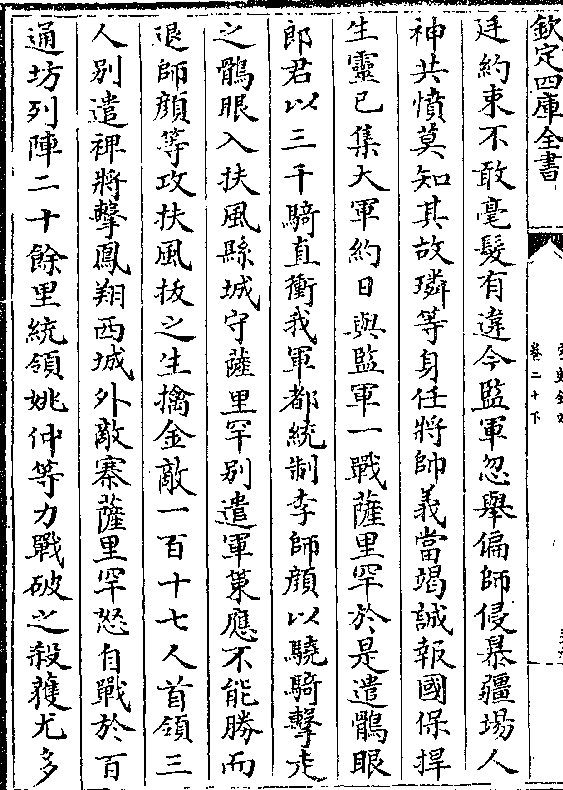 欽定四庫全書
卷二十下
廷約束不敢毫髮有違今監軍忽舉偏師侵暴疆埸人
神共憤莫知其故璘等身任將帥義當竭誠報國保捍
生靈已集大軍約日與監軍一戰薩里罕於是遣鶻眼
郎君以三千騎直衝我軍都統制李師顔以驍騎擊走
之鶻眼入扶風縣城守薩里罕別遣軍策應不能勝而
退師顔等攻扶風拔之生擒金敵一百十七人首領三
人別遣裨將擊鳳翔西城外敵寨薩里罕怒自戰於百
通坊列陣二十餘里統領姚仲等力戰破之殺獲尤多